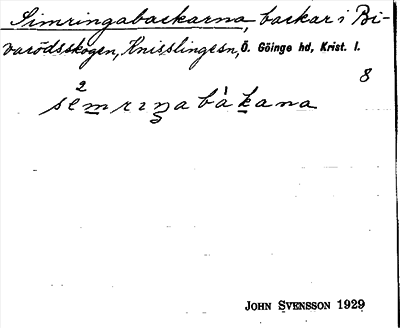 Simringabackarna, backar i Bi-
varödsskogen, Knisslinge sn, Ö. Göinge hd, Krist. l.
8
2
semriŋabàkana
JOHN SVENSSON 1929